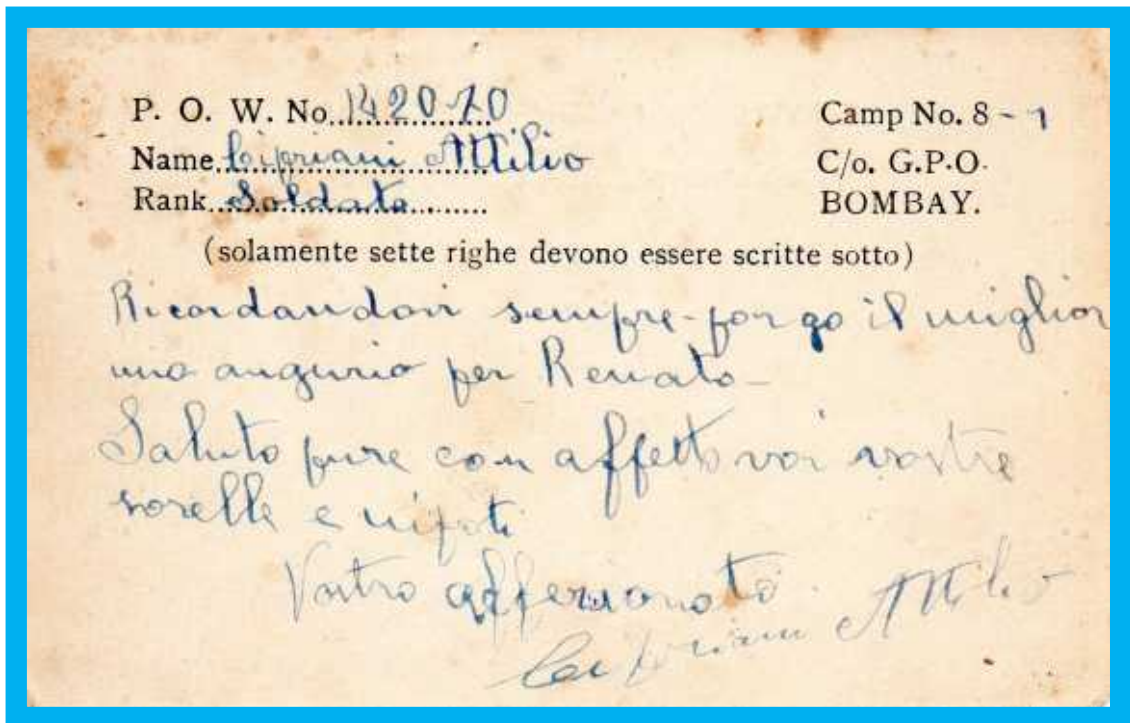 P. O. W. No. 142070
Camp No. 8 - 1
Name Cipriani Attilio
C/o. G.P.O.
Rank Soldato
BOMBAY.
(solamente sette righe devono essere scritte sotto)
Ricordandovi sempre porgo il miglior
mio augurio per Renato -
Saluto pure con affetto voi vostre
sorelle e nipoti
Vostro affezionato
Cipriani Attilio